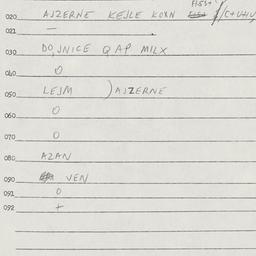 020 AJZERNE KEJLE KOXN
021 —
030 DOJNICE Q AP MILX
040 0
050 LEJM ) AJZERNE
060 0
070 0
080 AZAN
090 VEN
091 0
092 +